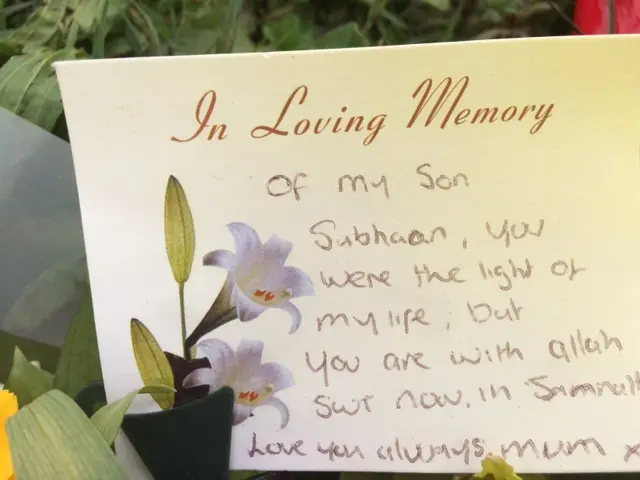 In Loving Memory
Of my Son
Subhaan, you
were the light of
my life, but
You are with allah
swt now. in Jannah
Love you always. Mum x